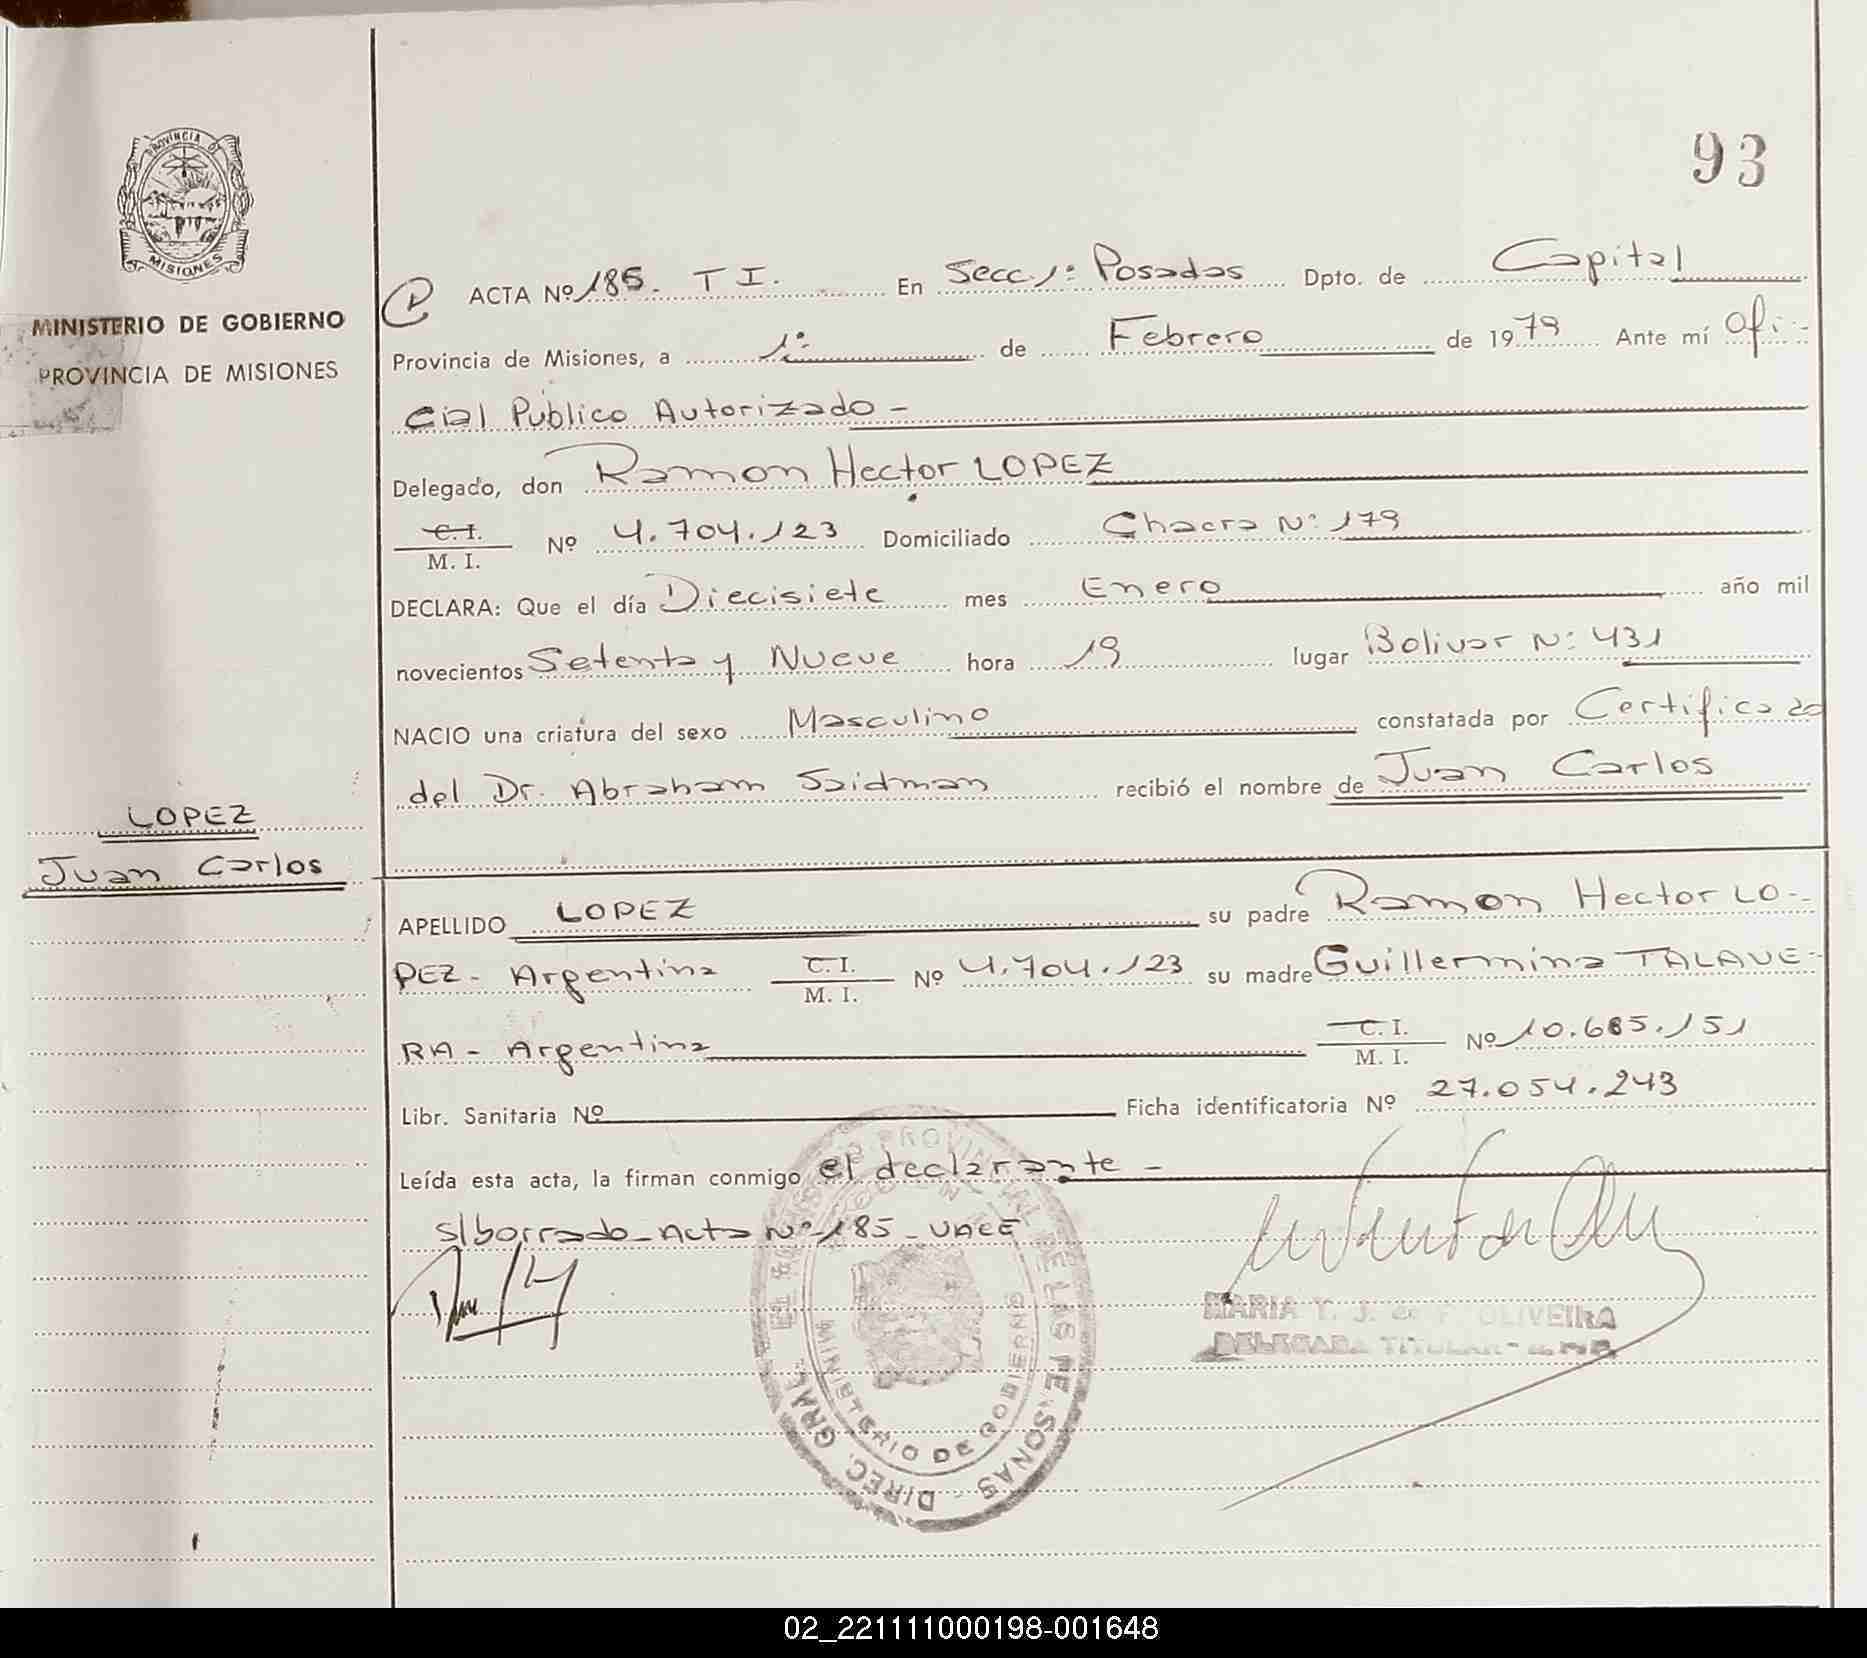 PROVINCIA DE
MISIONES
MINISTERIO DE GOBIERNO
PROVINCIA DE MISIONES
93
ACTA Nº 185. T I. En Secc. 1ª Posadas Dpto. de Capital
Provincia de Misiones, a 1º de Febrero de 1979 Ante mí Ofi-
cial Publico Autorizado -
Delegado, don Ramon Hector LOPEZ
C.I. / M. I. Nº 4.704.123 Domiciliado Chacra Nº 179
DECLARA: Que el día Diecisiete mes Enero año mil
novecientos Setenta y Nueve hora 19 lugar Bolivar Nº 431
NACIO una criatura del sexo Masculino constatada por Certificado
del Dr. Abraham Saidman recibió el nombre de Juan Carlos
LOPEZ
Juan Carlos
APELLIDO LOPEZ su padre Ramon Hector LO-
PEZ - Argentina C.I. / M. I. Nº 4.704.123 su madre Guillermina TALAVE-
RA - Argentina C.I. / M. I. Nº 10.685.151
Libr. Sanitaria Nº Ficha identificatoria Nº 27.054.243
Leída esta acta, la firman conmigo el declarante -
S/borrado - Acta Nº 185 - VALE
MARIA T. J. de F. OLIVEIRA
DELEGADA TITULAR
DIREC. GRAL. PROVINCIAL DE LAS PERSONAS
MINISTERIO DE GOBIERNO
02_221111000198-001648